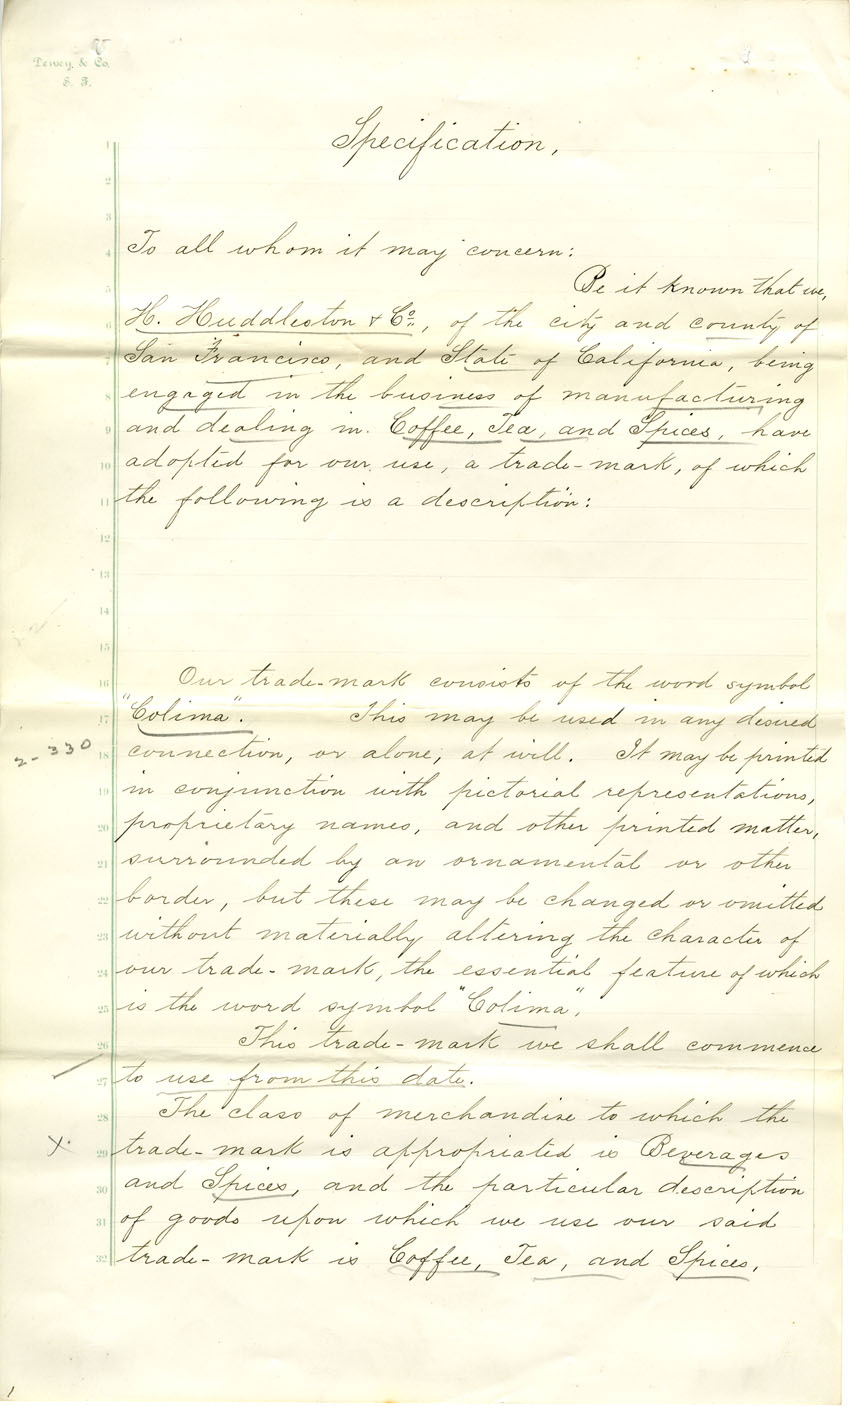 Dewey, & Co.
S. F.
Specification,
1
2
3
4 To all whom it may concern:
5 Be it known that we,
6 H. Huddleston & Co., of the city and county of
7 San Francisco, and State of California, being
8 engaged in the business of manufacturing
9 and dealing in Coffee, Tea, and Spices, have
10 adopted for our use, a trade-mark, of which
11 the following is a description:
12
13
14
15
16 Our trade-mark consists of the word symbol
17 "Colima". This may be used in any desired
2-330
18 connection, or alone, at will. It may be printed
19 in conjunction with pictorial representations,
20 proprietary names, and other printed matter,
21 surrounded by an ornamental or other
22 border, but these may be changed or omitted
23 without materially altering the character of
24 our trade-mark, the essential feature of which
25 is the word symbol "Colima".
26 This trade-mark we shall commence
27 to use from this date.
28 The class of merchandise to which the
X.
29 trade-mark is appropriated is Beverages
30 and Spices, and the particular description
31 of goods upon which we use our said
32 trade-mark is Coffee, Tea, and Spices.